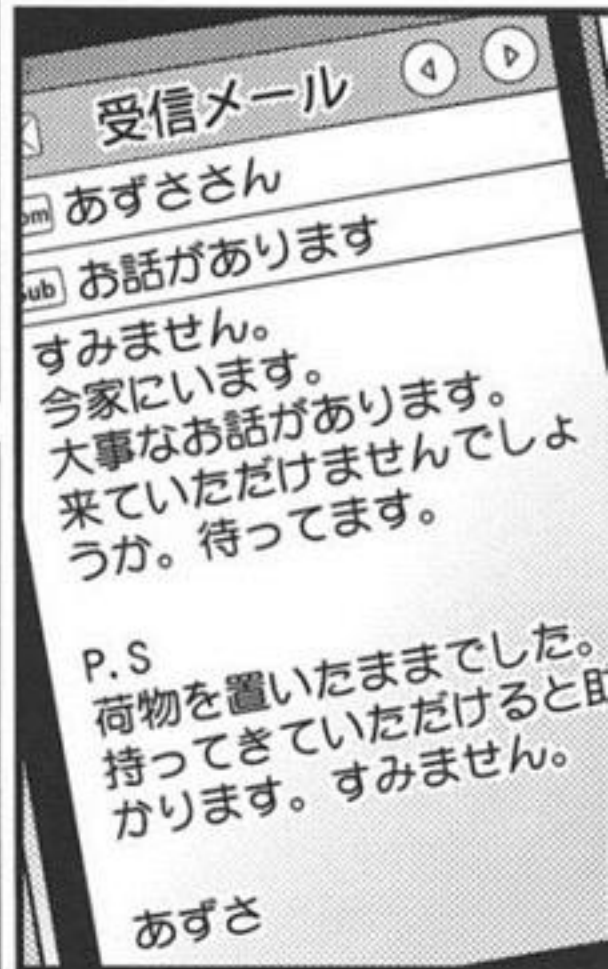 受信メール
om あずささん
ub お話があります
すみません。
今家にいます。
大事なお話があります。
来ていただけませんでしょ
うか。待ってます。
P.S
荷物を置いたままでした。
持ってきていただけると助
かります。すみません。
あずさ